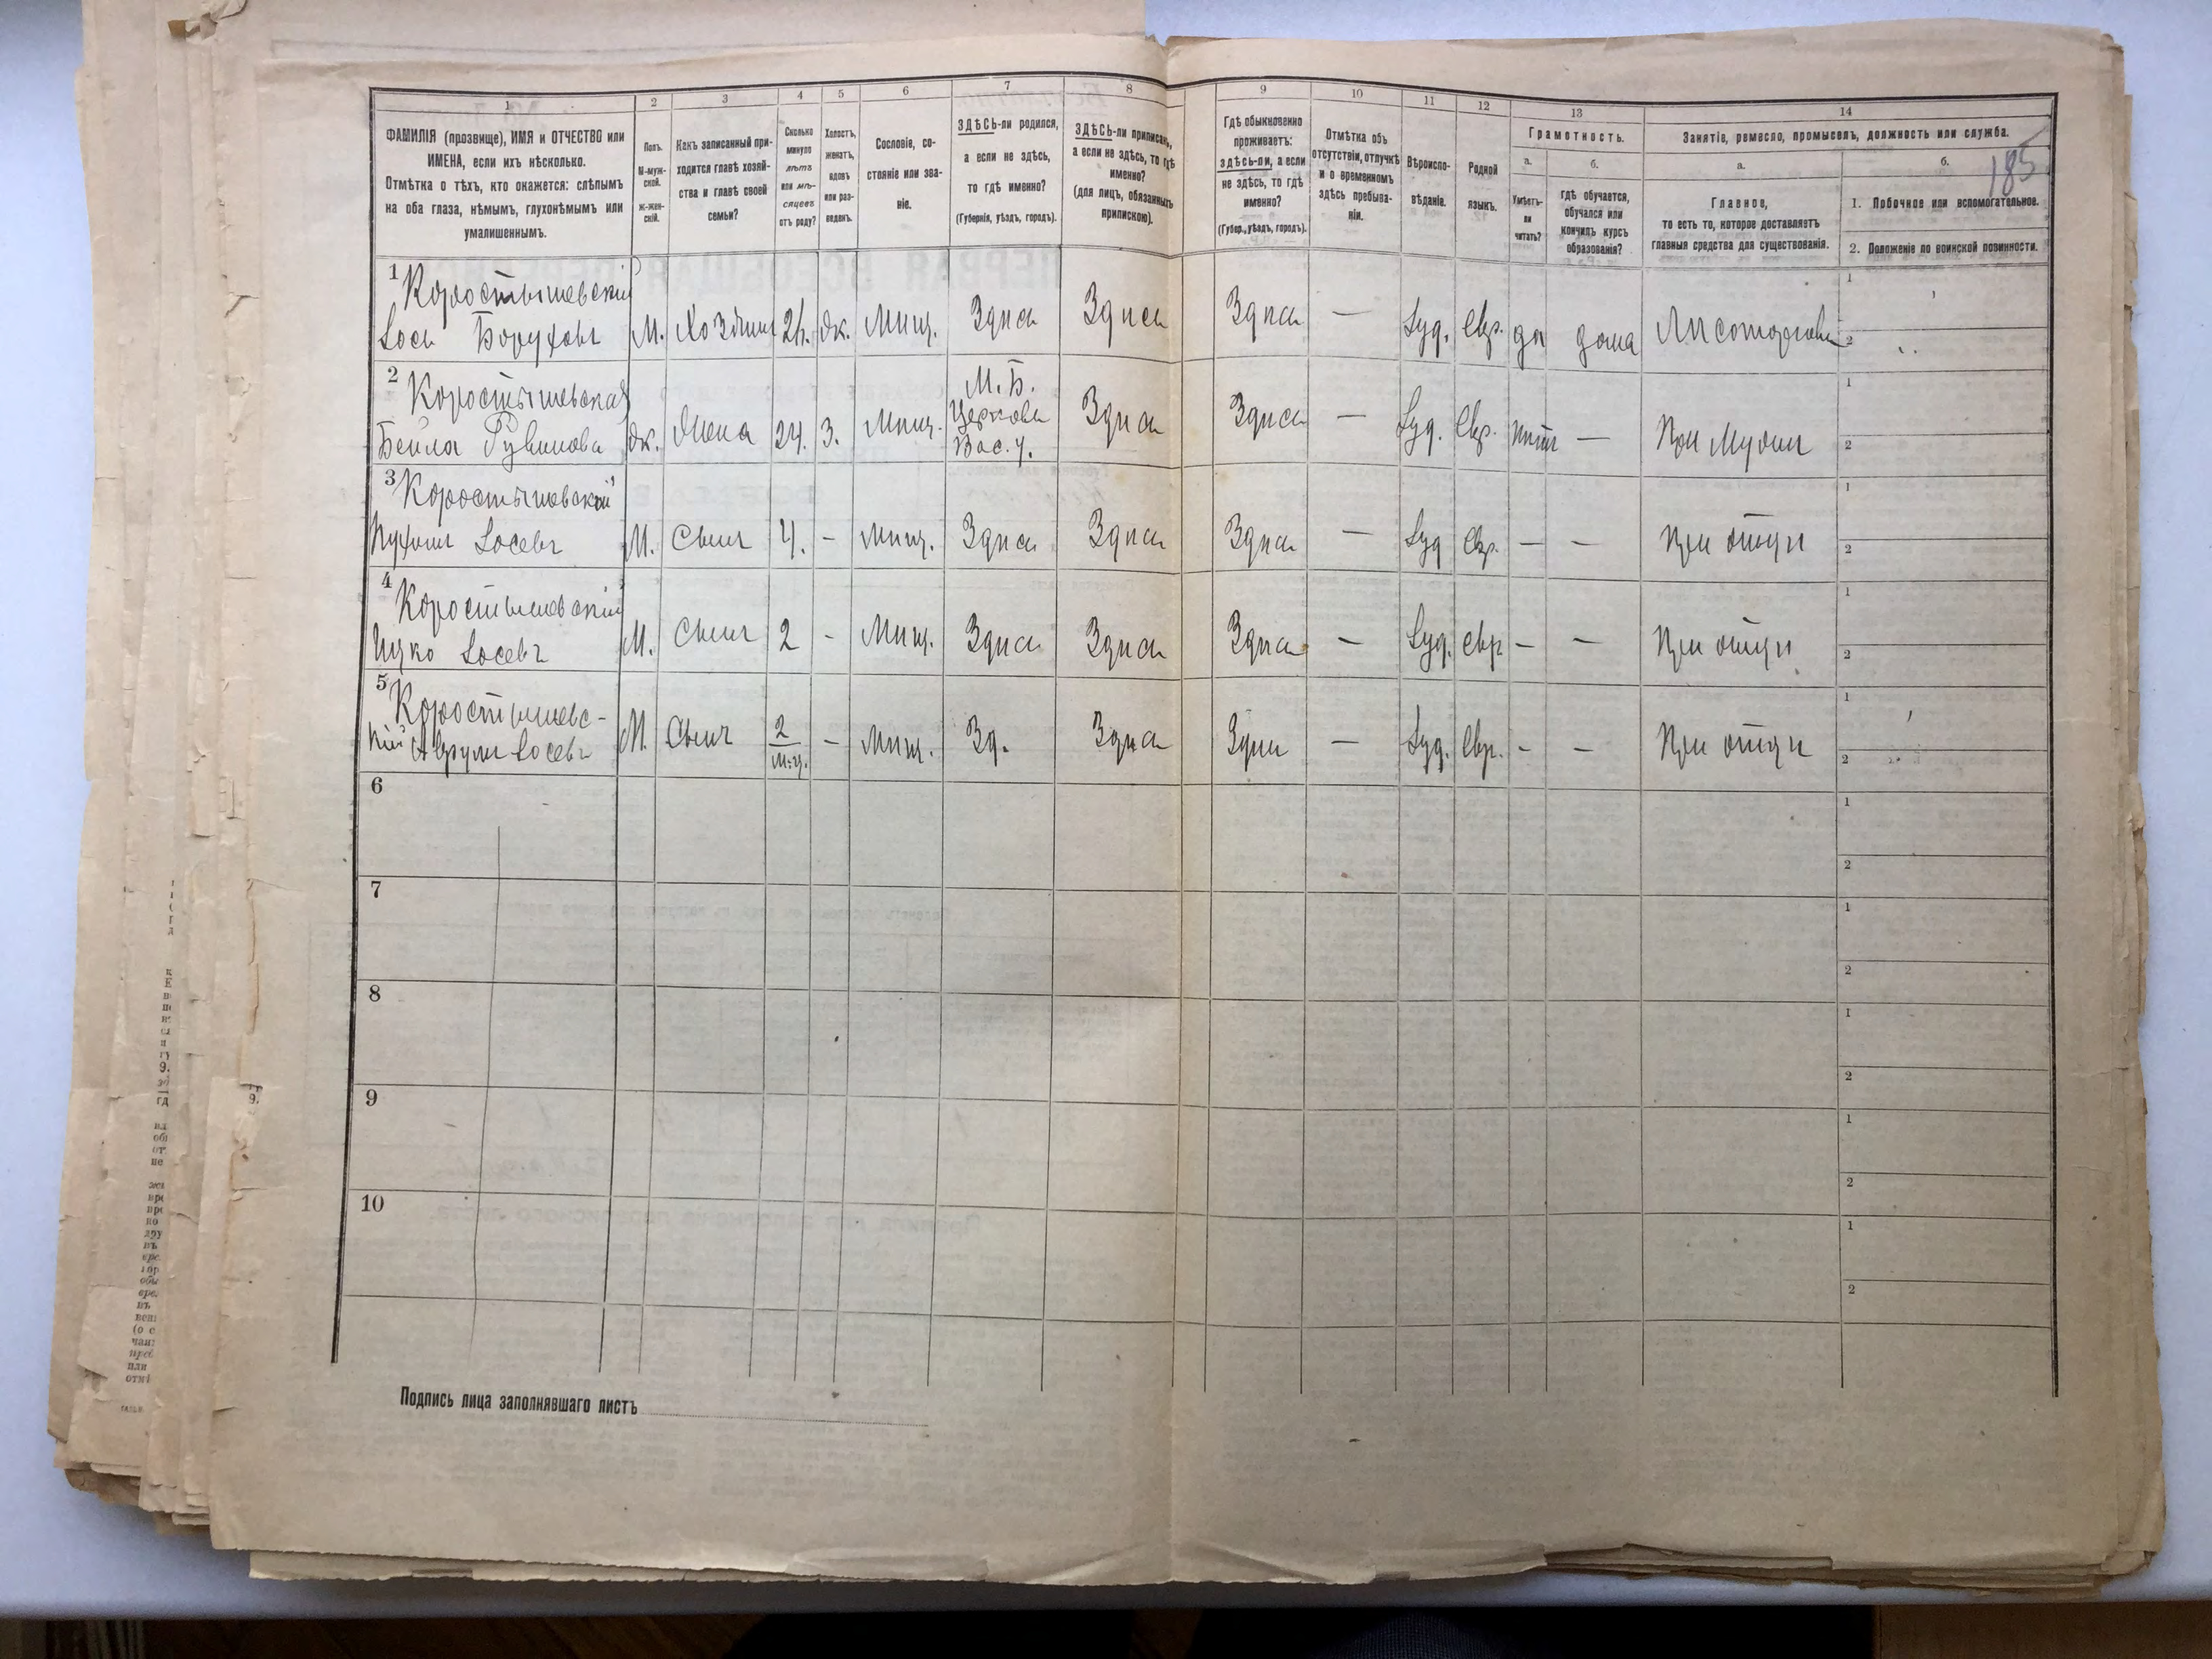 185
1
ФАМИЛІЯ (прозвище), ИМЯ и ОТЧЕСТВО или
ИМЕНА, если ихъ нѣсколько.
Отмѣтка о тѣхъ, кто окажется: слѣпымъ
на оба глаза, нѣмымъ, глухонѣмымъ или
умалишеннымъ.
2
Полъ.
М-муж-
ской.
ж-жен-
скій.
3
Какъ записанный при-
ходится главѣ хозяй-
ства и главѣ своей
семьи?
4
Сколько
минуло
лѣтъ
или мѣ-
сяцевъ
отъ роду?
5
Холостъ,
женатъ,
вдовъ
или раз-
веденъ.
6
Сословіе, со-
стояніе или зва-
ніе.
7
ЗДѢСЬ-ли родился,
а если не здѣсь,
то гдѣ именно?
(Губернія, уѣздъ, городъ).
8
ЗДѢСЬ-ли приписанъ,
а если не здѣсь, то гдѣ
именно?
(для лицъ, обязанныхъ
припискою).
9
Гдѣ обыкновенно
проживаетъ:
здѣсь-ли, а если
не здѣсь, то гдѣ
именно?
(Губер., уѣздъ, городъ).
10
Отмѣтка объ
отсутствіи, отлучкѣ
и о временномъ
здѣсь пребыва-
ніи.
11
Вѣроиспо-
вѣданіе.
12
Родной
языкъ.
13
Грамотность.
а.
Умѣетъ-
ли
читать?
б.
гдѣ обучается,
обучался или
кончилъ курсъ
образованія?
14
Занятіе, ремесло, промыселъ, должность или служба.
а.
Главное,
то есть то, которое доставляетъ
главныя средства для существованія.
б.
1. Побочное или вспомогательное.
2. Положеніе по воинской повинности.
1 Коростышевскій
Іось Боруховъ
М. Хозяинъ ж. Мѣщ. Здѣсь Здѣсь Здѣсь — Іуд. Евр. да дома Лѣсоторговецъ
1
2
2 Коростышевская
Бейла Рувинова
ж. Жена 24. З. Мѣщ.
М. Б.
Церковь
Вас. у.
Здѣсь Здѣсь — Іуд. Евр. нѣтъ — При мужѣ
1
2
3 Коростышевскій
Нухимъ Іосевъ
М. Сынъ 4. - Мѣщ. Здѣсь Здѣсь Здѣсь — Іуд Евр. — — При отцѣ
1
2
4 Коростышевскій
Ицко Іосевъ
М. Сынъ 2 - Мѣщ. Здѣсь Здѣсь Здѣсь — Іуд. Евр — — При отцѣ
1
2
5 Коростышевс-
кій Іосевъ
М. Сынъ 2 м-ц. - Мѣщ. Зд. Здѣсь Здѣсь — Іуд. Евр. - — При отцѣ
1
2
6
1
2
7
1
2
8
1
2
9
1
2
10
1
2
Подпись лица заполнявшаго листъ